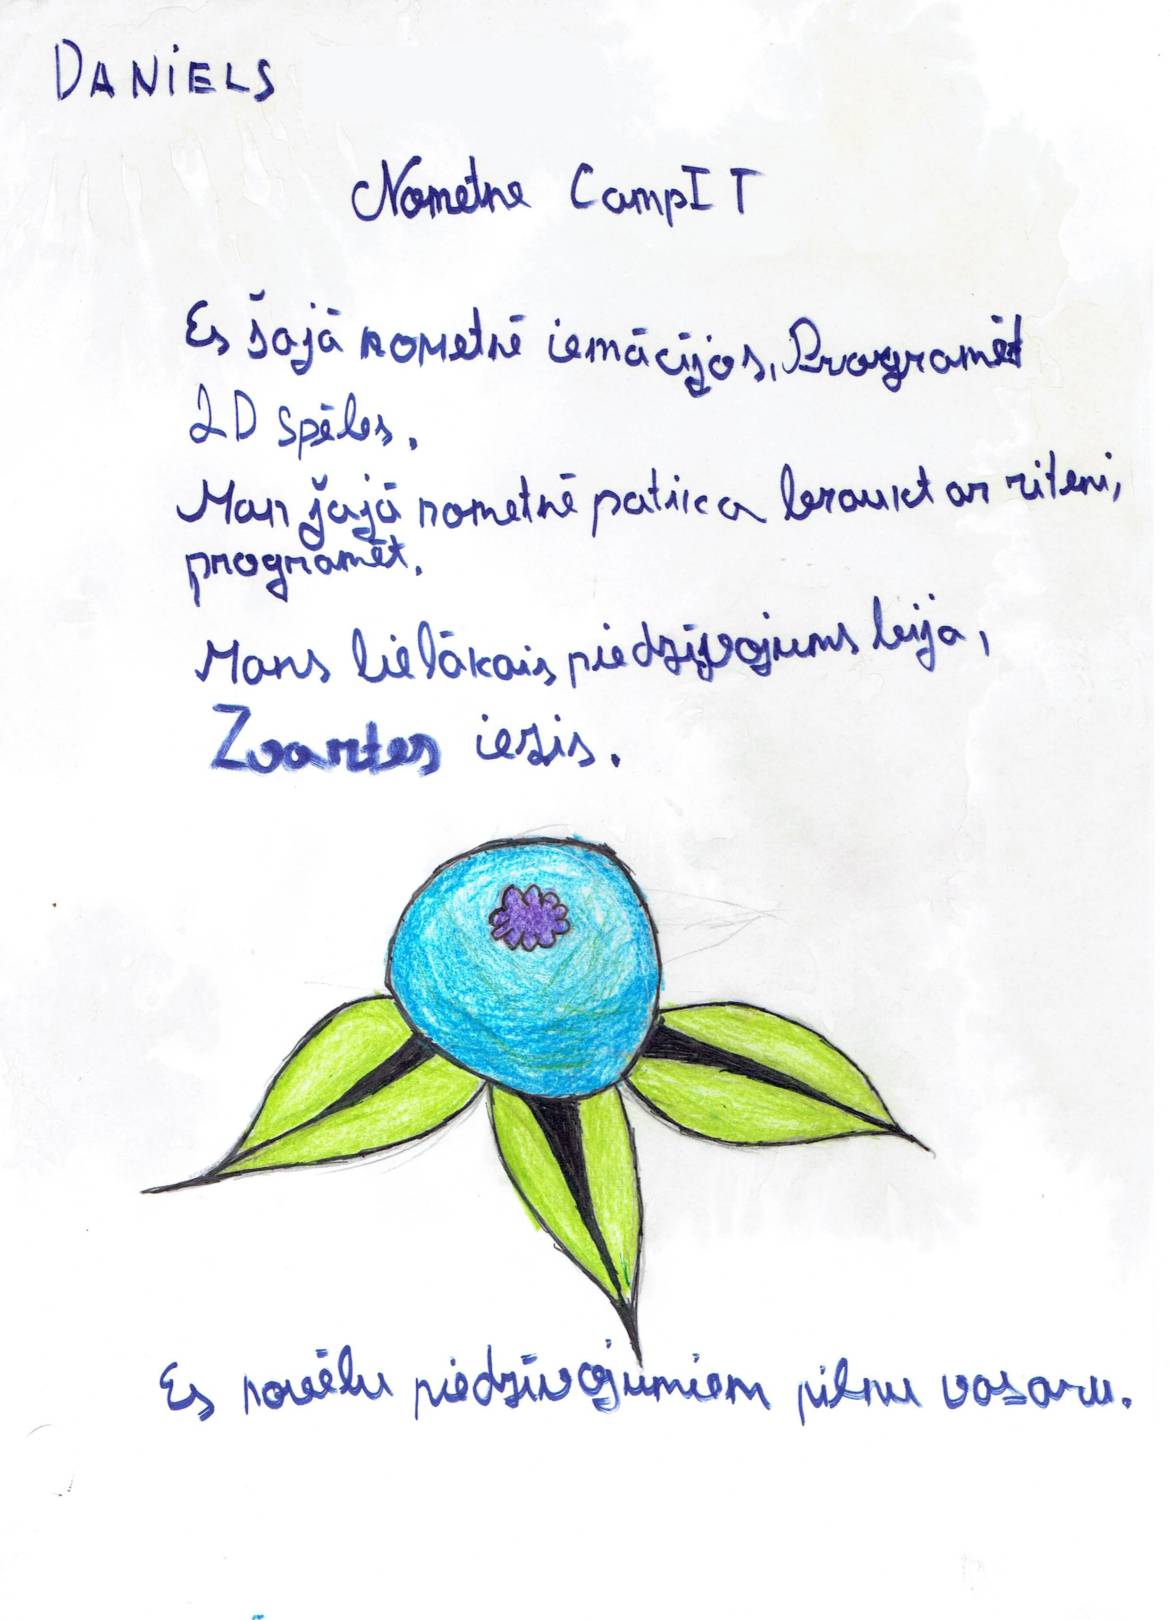 DANiELS
Nometne CampIT
Es šajā nometnē iemācījos, Programēt
2D spēles.
Man šajā nometnē patika braukt ar riteni,
programēt.
Mans lielākais piedzīvojums bija,
Zvartes iezis.
Es novēlu piedzīvojumiem pilnu vasaru.